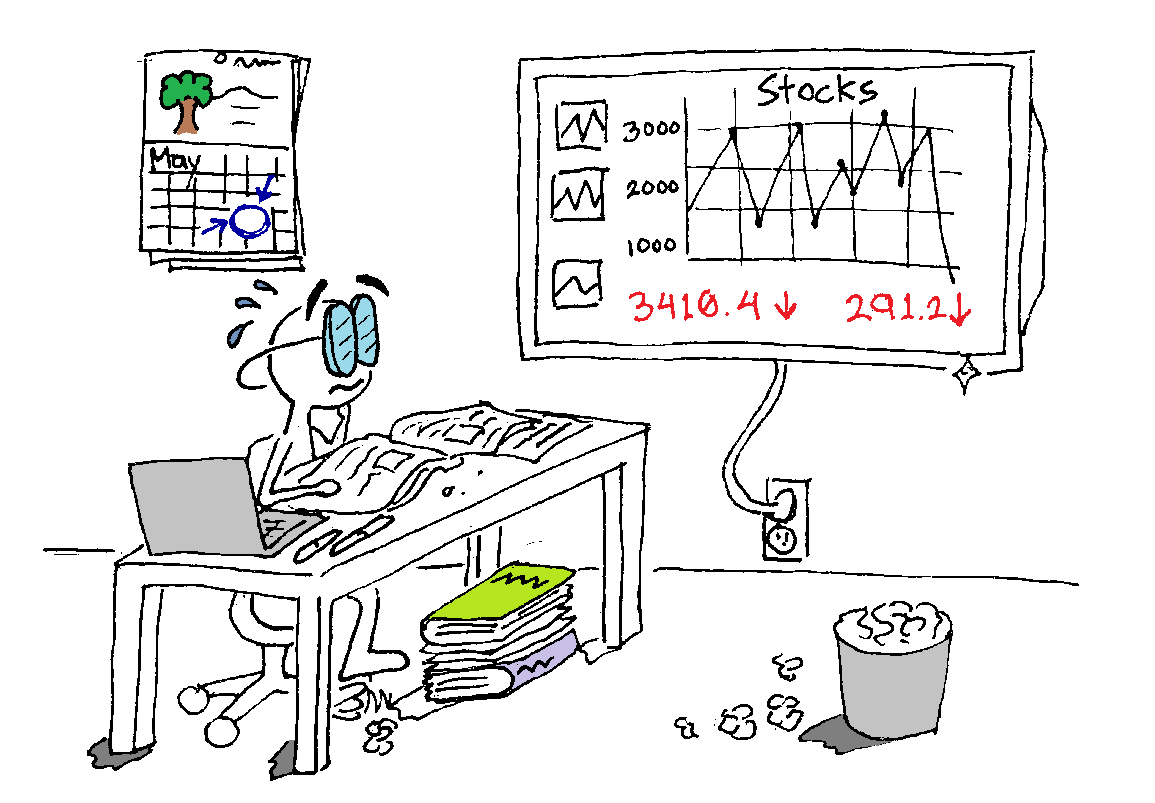 May
Stocks
3000
2000
1000
3410.4↓ 291.2↓